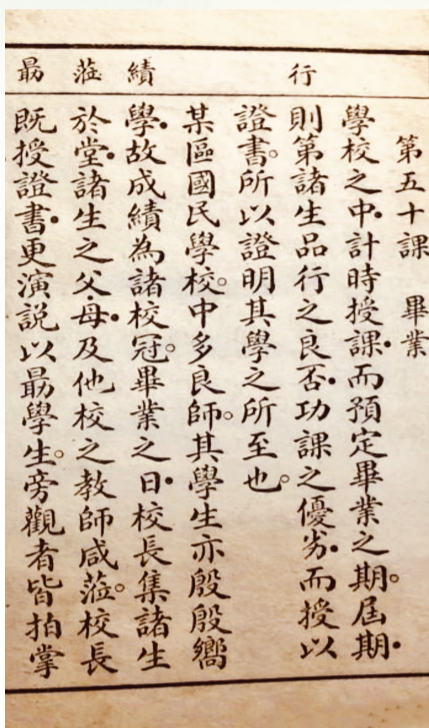 行
績
蒞
勗
第五十課　畢業
學校之中•計時授課•而預定畢業之期。屆期•
則第諸生品行之良否•功課之優劣•而授以
證書。所以證明其學之所至也。
某區國民學校。中多良師。其學生亦殷殷嚮
學•故成績為諸校冠。畢業之日•校長集諸生
於堂•諸生之父•母•及他校之教師咸蒞。校長
既授證書•更演說以勗學生。旁觀者皆拍掌